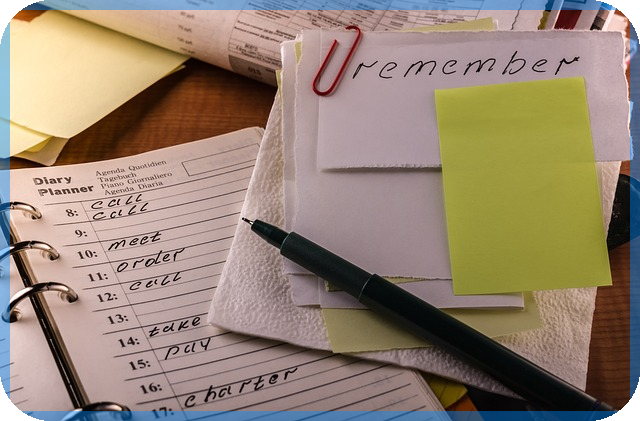 remember
Diary
Planner
Agenda Quotidien
Tagebuch
Piano Giornaliero
Agenda Diaria
8: call
call
9:
10: meet
11: order
12: call
13:
14: take
15: pay
16:
17: charter